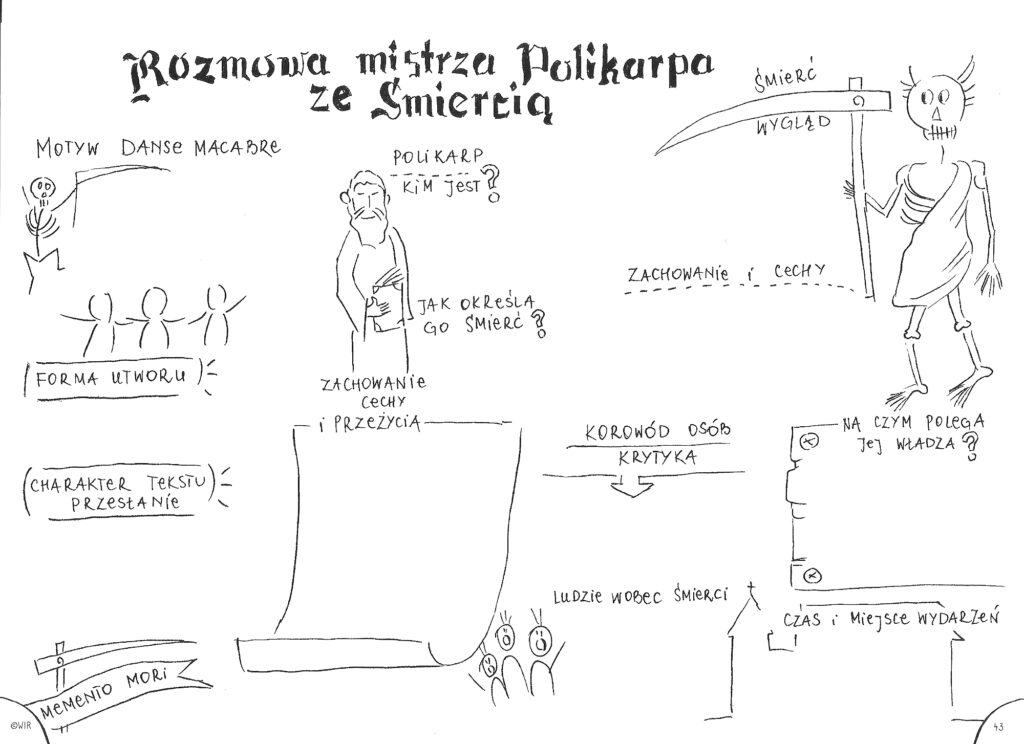 Rozmowa mistrza Polikarpa
ze Śmiercią
MOTYW DANSE MACABRE
POLIKARP
KIM JEST?
ŚMIERĆ
WYGLĄD
ZACHOWANIE I CECHY
JAK OKREŚLA
GO ŚMIERĆ?
FORMA UTWORU
ZACHOWANIE
CECHY
I PRZEŻYCIA
KOROWÓD OSÓB
KRYTYKA
NA CZYM POLEGA
JEJ WŁADZA?
CHARAKTER TEKSTU
PRZESŁANIE
LUDZIE WOBEC ŚMIERCI
CZAS I MIEJSCE WYDARZEŃ
MEMENTO MORI
©WIR
43